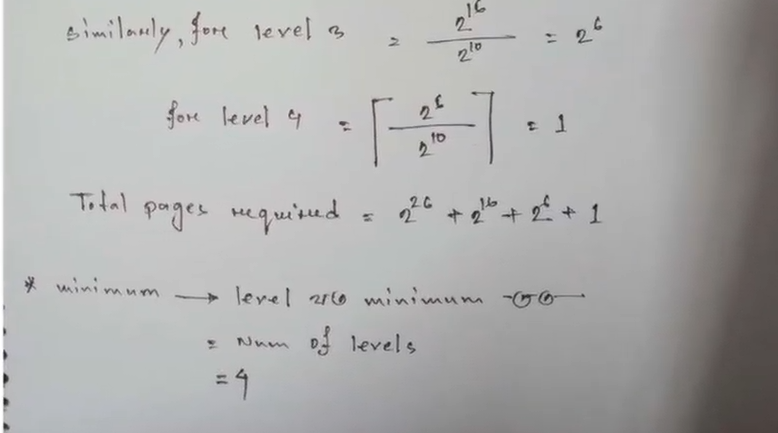 similarly, fore level 3 = 2^16 / 2^10 = 2^6
fore level 4 = ⌈2^6 / 2^10⌉ = 1
Total pages required = 2^26 + 2^16 + 2^6 + 1
* minimum → level minimum
= Num of levels
= 4